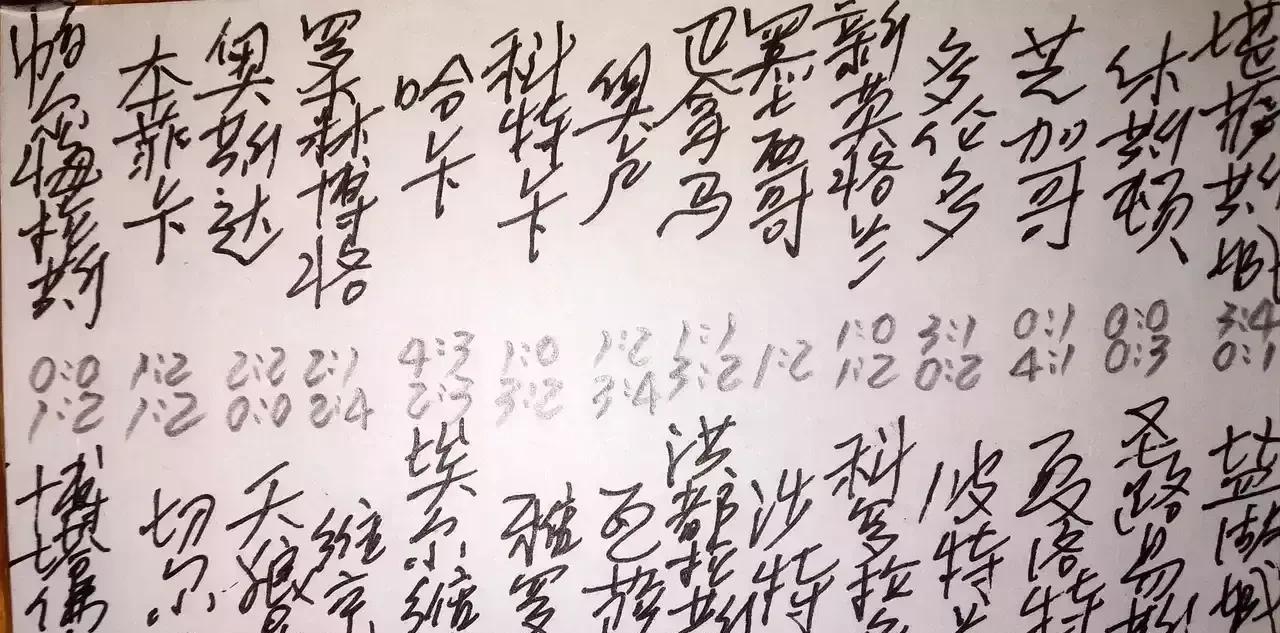 帕尔梅拉斯
本菲卡
奥斯达
罗森博格
哈卡
科特卡
奥卢
巴拿马
墨西哥
新英格兰
多伦多
芝加哥
休斯顿
堪萨斯城
0:0 1:2 2:2 2:1 4:3 1:0 1:2 1:1 1:2 1:0 3:1 0:1 0:0 3:4
1:2 1:2 0:0 2:4 2:3 3:2 3:4 3:2 1:2 0:2 4:1 0:3 0:1
博塔
切尔
天狼
维京
埃尔维
雅罗
瓦萨
洪都拉斯
沙特
科罗拉
波特兰
夏洛特
圣路易斯
盐湖城